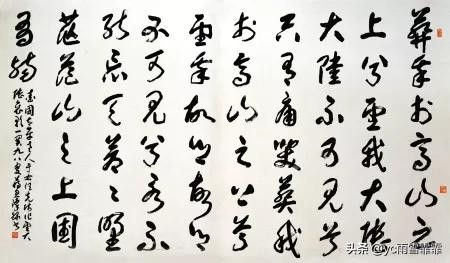 葬我於高山之
上兮望我大陸
大陸不可見兮
只有痛哭葬我
於高山之上兮
望我故鄉故鄉
不可見兮永不
能忘天蒼蒼野
茫茫山之上國
有殤
头条 @yc雨雪霏霏